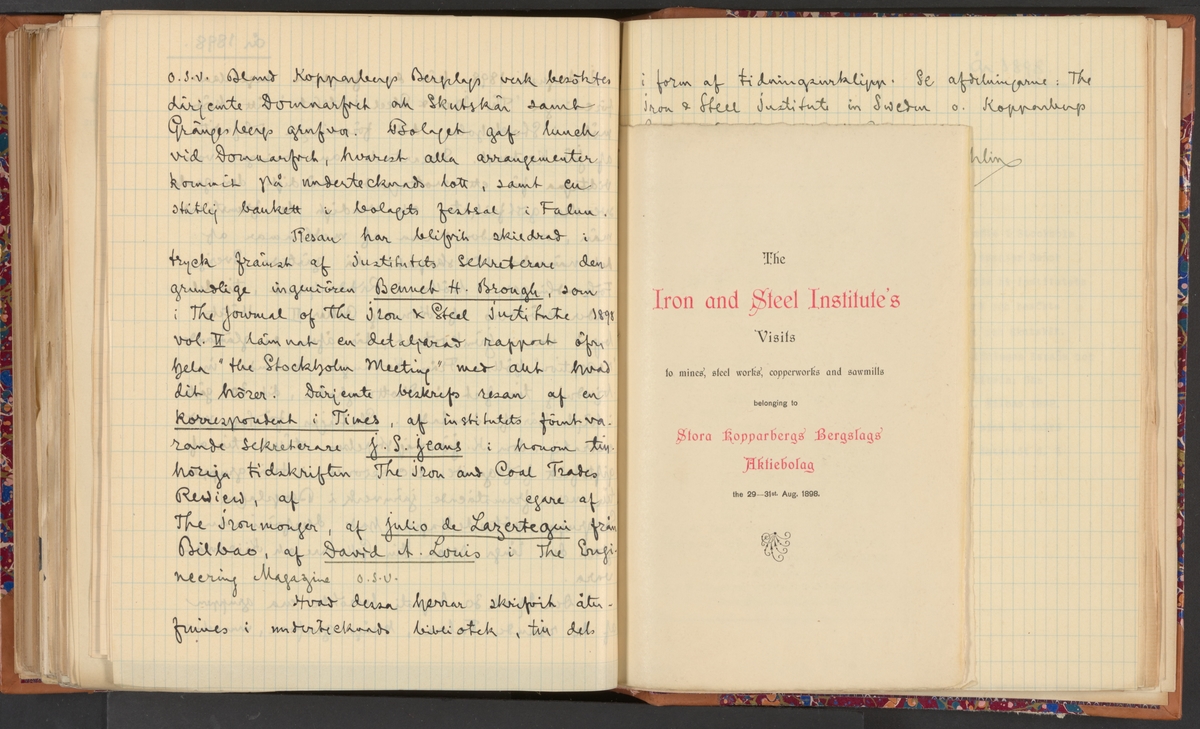 o.s.v. Bland Kopparbergs Bergslags verk besöktes
därjemte Domnarfvet och Skutskär samt
Grängesbergs grufvor. Bolaget gaf lunch
vid Domnarfvet, hvarest alla arrangementer
kommit på undertecknads lott, samt en
ståtlig bankett i bolagets festsal i Falun.
Resan har blifvit skildrad i
tryck främst af Institutets Sekreterare den
grundlige ingeniören Bennet H. Brough, som
i The Journal of the Iron & Steel Institute 1898
vol. II lämnat en detaljerad rapport öfver
hela "the Stockholm Meeting" med allt hvad
dit hörer. Därjemte beskrefs resan af en
korrespondent i Times, af institutets förutva-
rande Sekreterare J. S. Jeans i honom till-
höriga tidskriften The Iron and Coal Trades
Rewiew, af egare af
The Ironmonger, af Julio de Lazertegui från
Bilbao, af David A. Louis i The Engi-
neering Magazine o.s.v.
Hvad dessa herrar skrifvit åter-
finnes i undertecknads bibliotek, till dels
i form af tidningsurklipp. Se afdelningarne: The
Iron & Steel Institute in Sweden o. Kopparbergs
hlin
The
Iron and Steel Institute's
Visits
to mines, steel works, copperworks and sawmills
belonging to
Stora Kopparbergs Bergslags
Aktiebolag
the 29—31st. Aug. 1898.